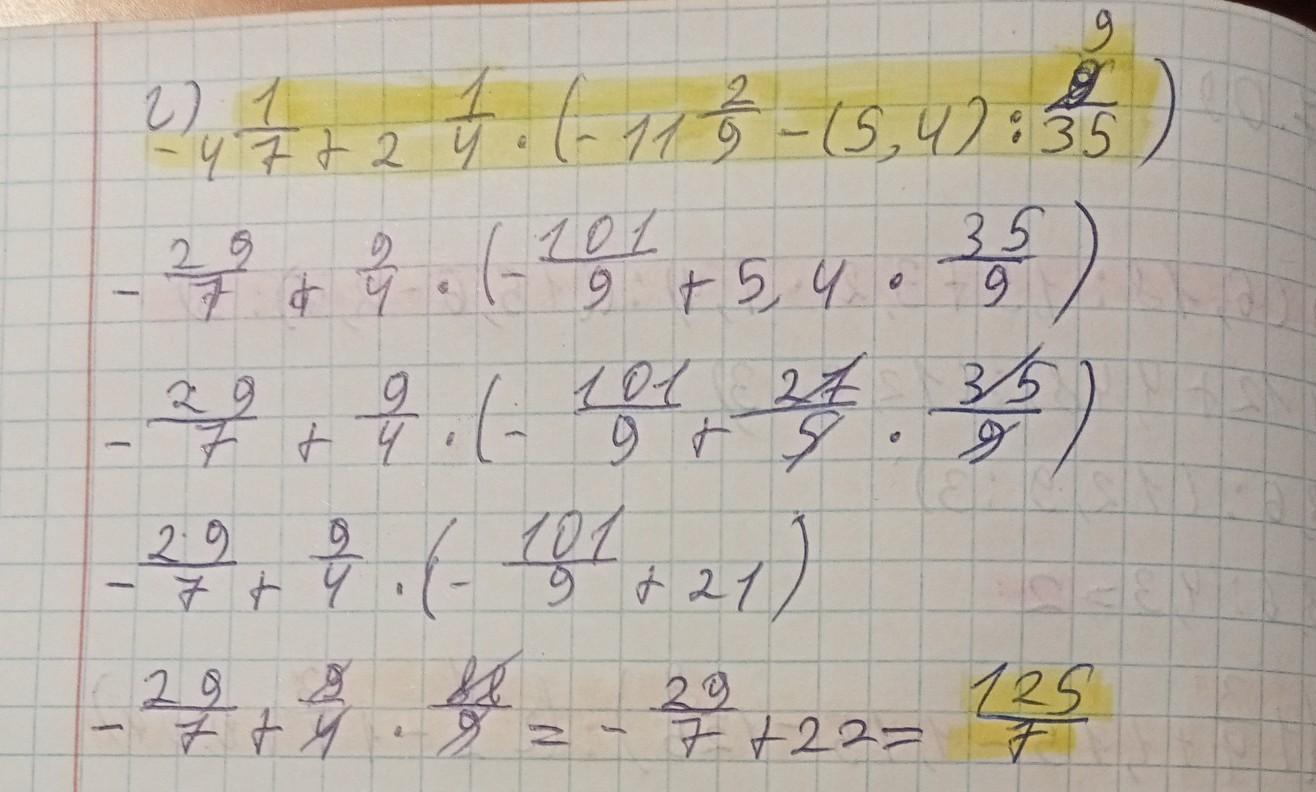 г) -4 1/7 + 2 1/4 · (-11 2/9 - (5,4) : 9/35)
- 29/7 + 9/4 · (- 101/9 + 5,4 · 35/9)
- 29/7 + 9/4 · (- 101/9 + 27/5 · 35/9)
- 29/7 + 9/4 · (- 101/9 + 21)
- 29/7 + 9/4 · 88/9 = - 29/7 + 22 = 125/7